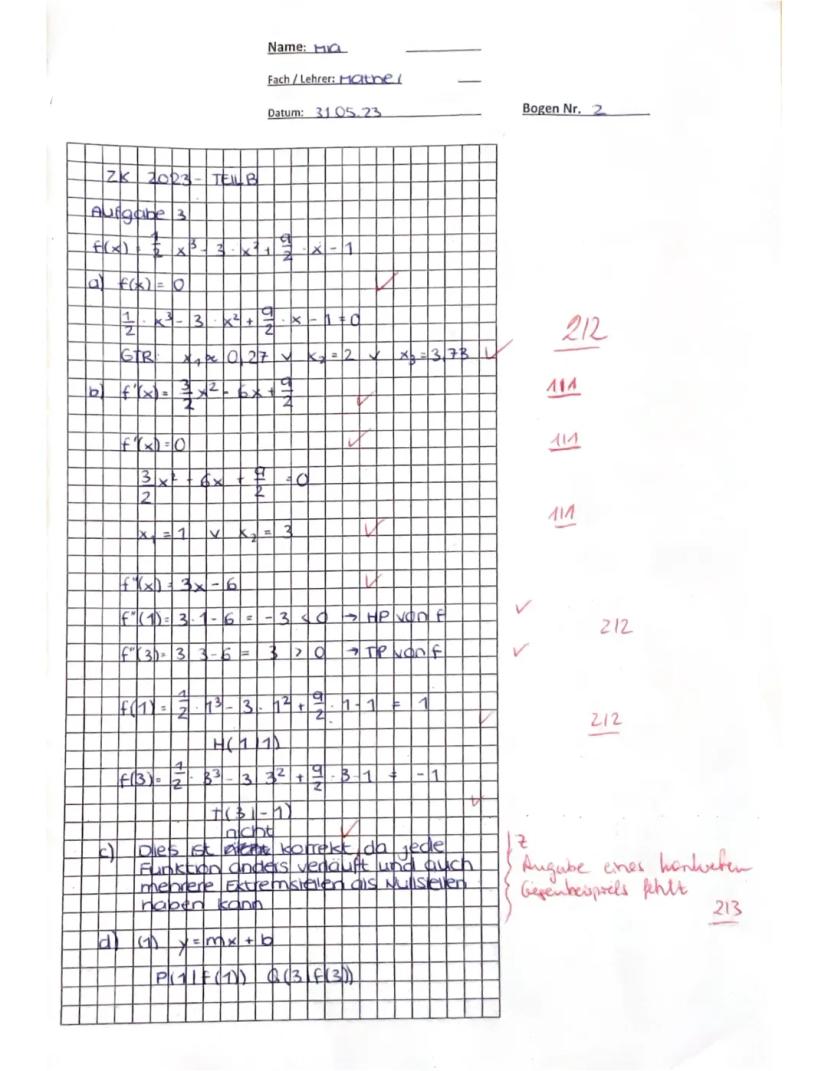 Name: Mia
Fach / Lehrer: Mathe /
Datum: 31.05.23
Bogen Nr. 2
ZK 2023 - TEIL B
Aufgabe 3
f(x) = 1/2 x³ - 3 · x² + 9/2 · x - 1
a) f(x) = 0
1/2 · x³ - 3 · x² + 9/2 · x - 1 = 0
212
GTR: x₁ ≈ 0,27 ∨ x₂ = 2 ∨ x₃ = 3,73
b) f'(x) = 3/2 x² - 6x + 9/2
111
f'(x) = 0
111
3/2 x² - 6x + 9/2 = 0
x₁ = 1 ∨ x₂ = 3
111
f''(x) = 3x - 6
f''(1) = 3·1 - 6 = -3 < 0 → HP von f
212
f''(3) = 3·3 - 6 = 3 > 0 → TP von f
f(1) = 1/2 · 1³ - 3 · 1² + 9/2 · 1 - 1 = 1
212
H(1|1)
f(3) = 1/2 · 3³ - 3·3² + 9/2 · 3 - 1 = -1
T(3|-1)
nicht
c) Dies ist korrekt, da jede
Funktion anders verläuft und auch
mehrere Extremstellen als Nullstellen
haben kann
Z
Angabe eines konkreten
Gegenbeispiels fehlt
213
d) (1) y = mx + b
P(1|f(1)) Q(3|f(3))